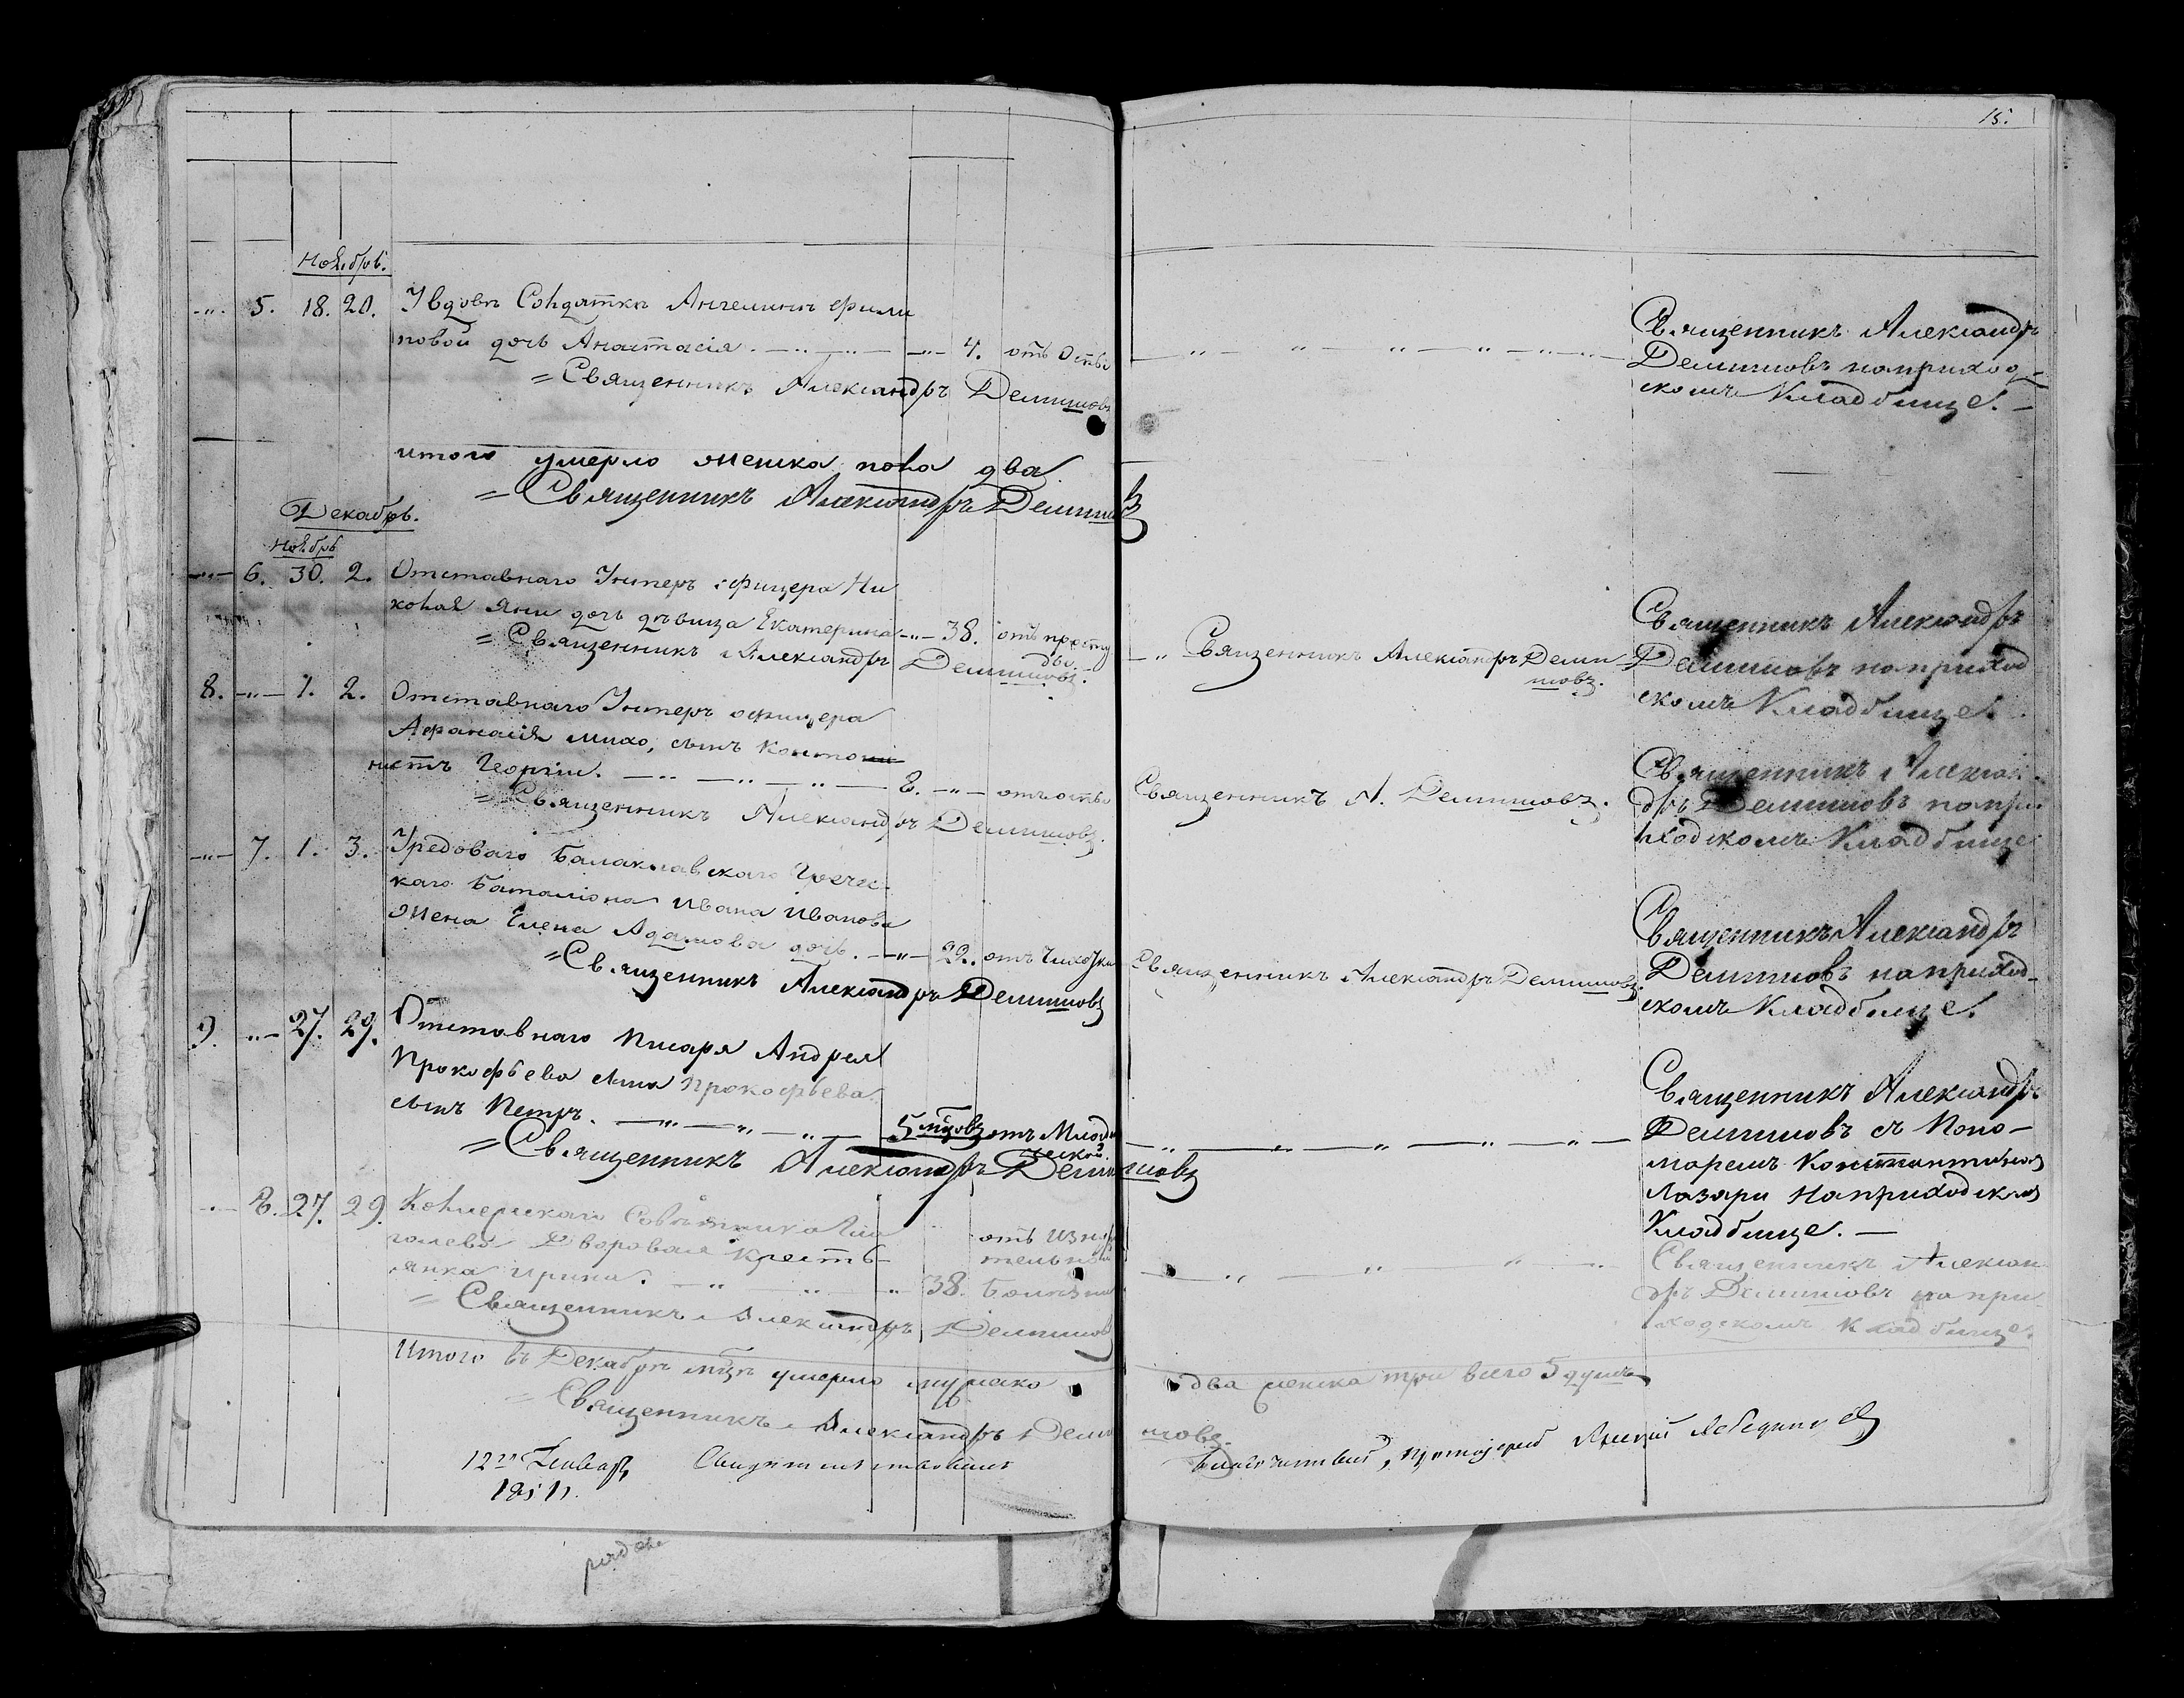 15.
Ноябрь.
5. 18. 20. У вдовы Солдатки Ангелины Фили
повой дочь Анастасія. 4. отъ Оспы
= Священникъ Александръ Демишовъ
Священникъ Александръ
Демишовъ на приход
скомъ Кладбище.
итого умерло женска пола два
= Священникъ Александръ Демишовъ
Декабрь.
Ноябрь
6. 30. 2. Отставнаго Унтеръ офицера Ни
колая Яни дочь дѣвица Екатерина 38. отъ просту
ды.
= Священникъ Александръ Демишовъ.
Священникъ Александръ Деми
шовъ.
Священникъ Александръ
Демишовъ на приход
скомъ Кладбище.
8. 1. 2. Отставнаго Унтеръ офицера
Афанасія Михо, сынъ Кантони
нистъ Георгій. 8. отъ оспы
= Священникъ Александръ Демишовъ.
Священникъ А. Демишовъ.
Священникъ Алексан
дръ Демишовъ на при
ходскомъ Кладбище
7. 1. 3. Уредоваго Балаклавскаго Гречес
каго баталіона Ивана Иванова
жена Елена Адамова дочь. 22. отъ Чихотки
= Священникъ Александръ Демишовъ
Священникъ Александръ Демишовъ.
Священникъ Александръ
Демишовъ на приход-
скомъ Кладбище.
9. 27. 29. Отставнаго Писаря Андрея
Прокофьева сына Прокофьева
сынъ Петръ. 5 мцовъ отъ Млад
ческой
= Священникъ Александръ Демишовъ
Священникъ Александръ
Демишовъ съ Поно-
маремъ Константиномъ
Лазари на приходскомъ
Кладбище. —
8. 27. 29. Колмерскаго Совѣтника Гла
голева Дворовая Крестья-
янка Ирина. 38. отъ изнур
тельной
болѣзни
= Священникъ Александръ Демишовъ
Священникъ Алексан
дръ Демишовъ на при
ходскомъ Кладбище.
Итого въ Декабрѣ мцѣ умерло мужеска два женска три всего 5 душъ
= Священникъ Александръ Демишовъ.
12го Генваря Свидѣтельствовалъ Благочинный, протоіерей